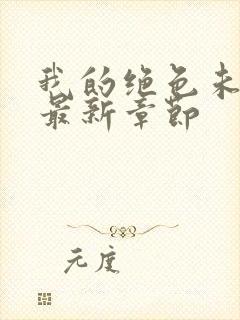 我的绝色未
最新章节
元度